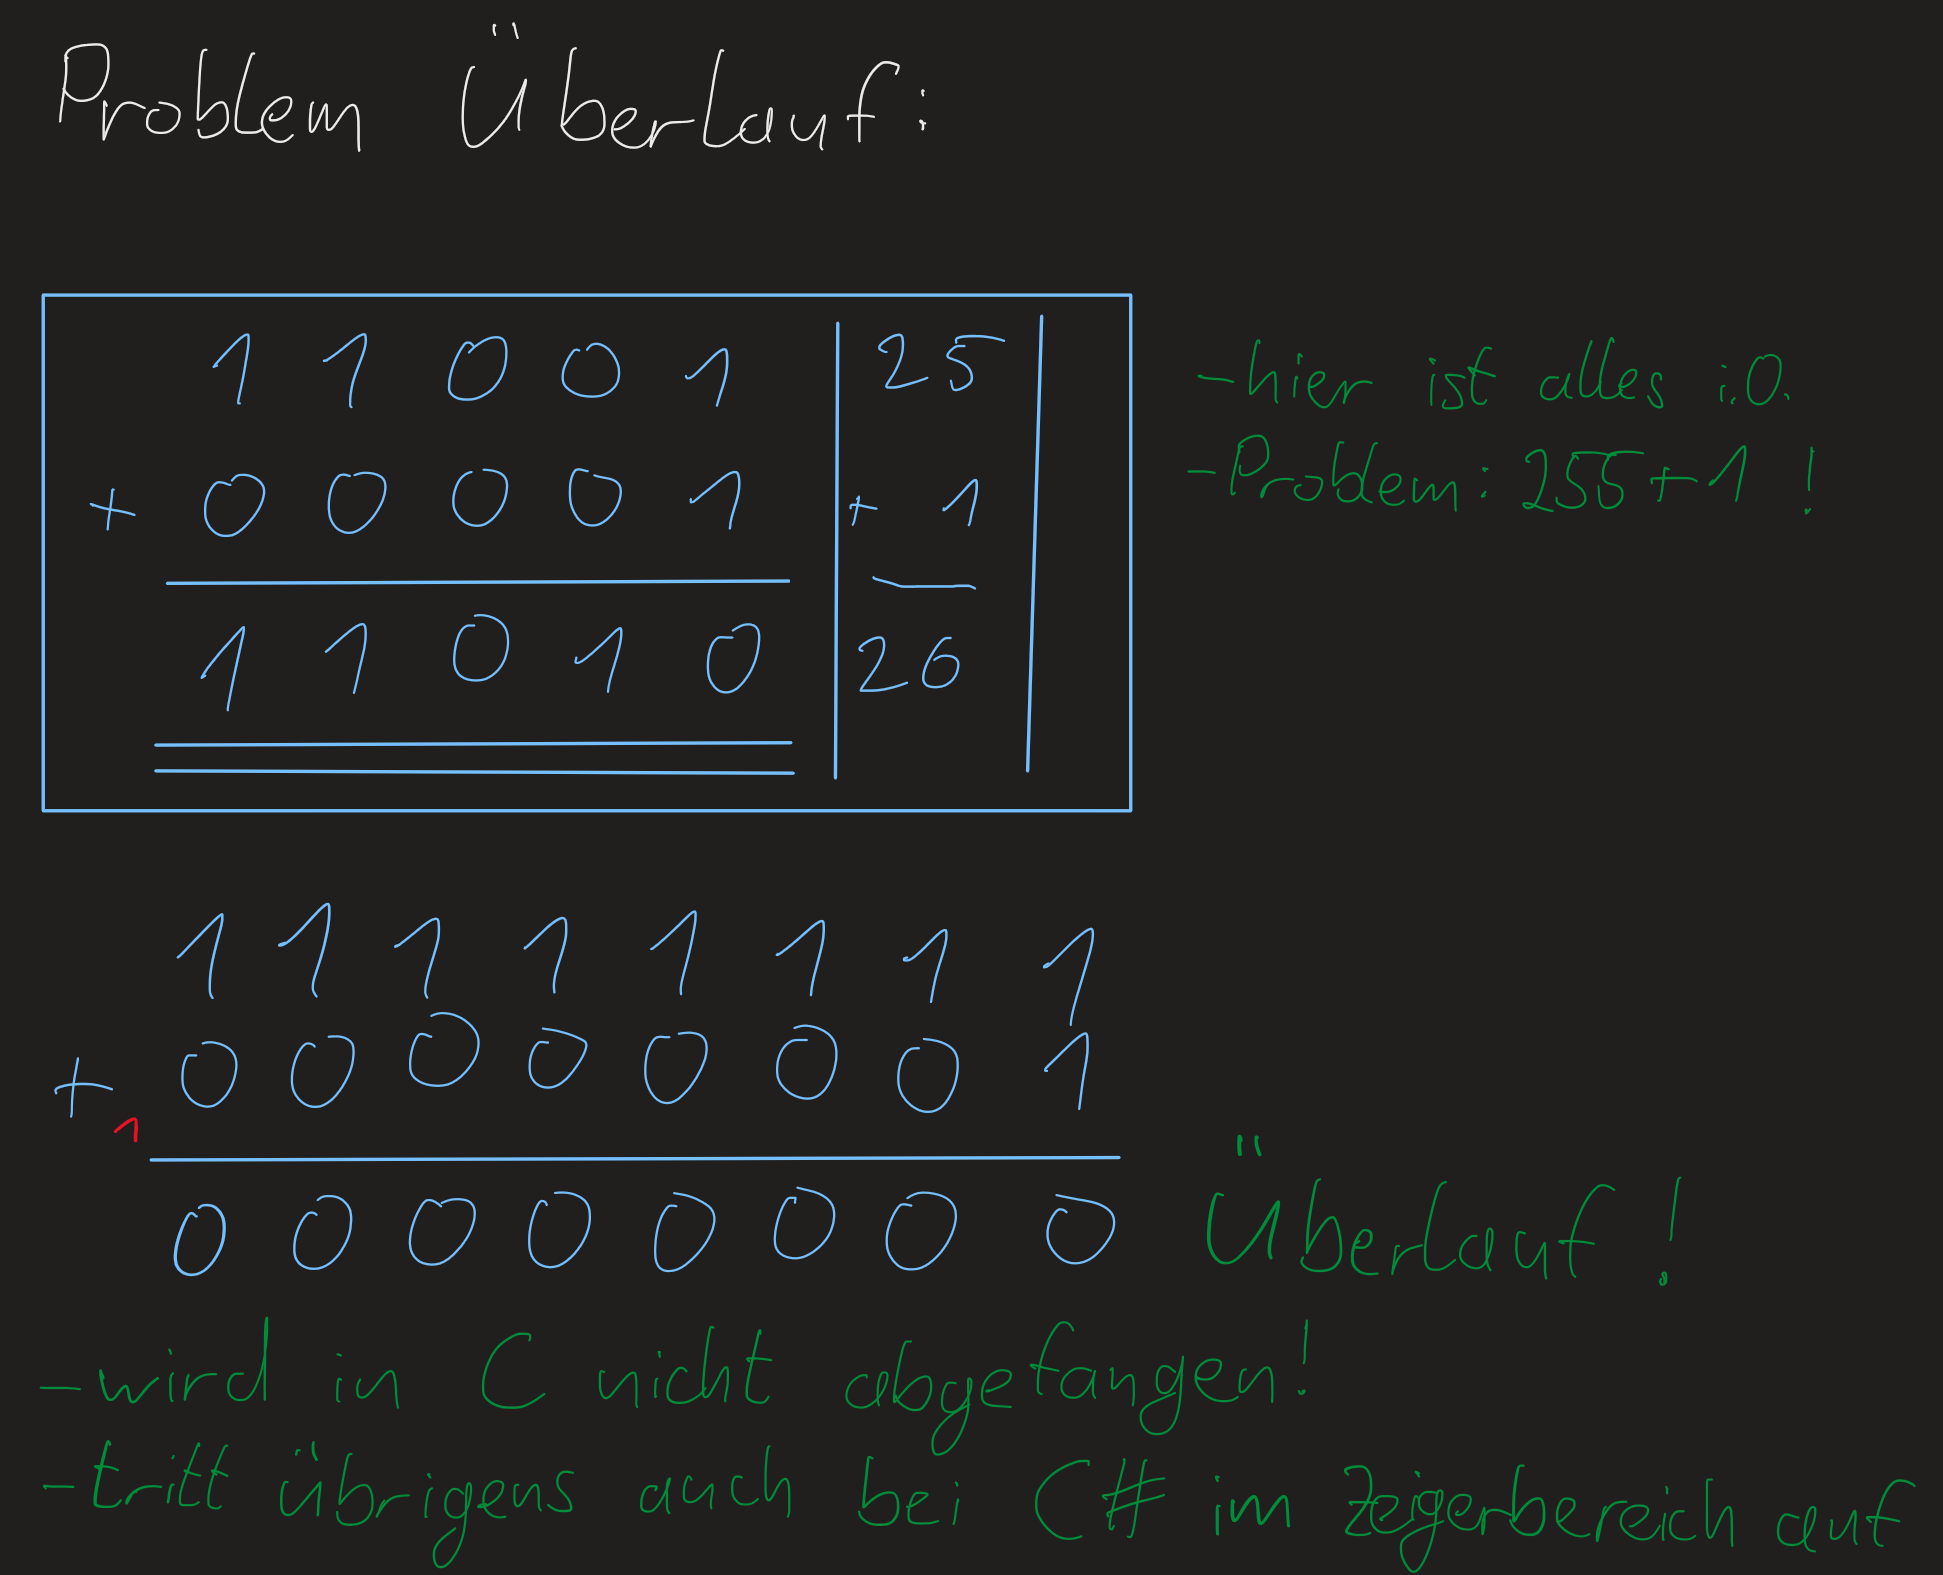 Problem Überlauf:
1 1 0 0 1 25
+ 0 0 0 0 1 + 1
1 1 0 1 0 26
- hier ist alles i.O.
- Problem: 255+1!
1 1 1 1 1 1 1 1
+ 0 0 0 0 0 0 0 1
1
0 0 0 0 0 0 0 0 Überlauf!
- wird in C nicht abgefangen!
- tritt übrigens auch bei C# im Zeigerbereich auf